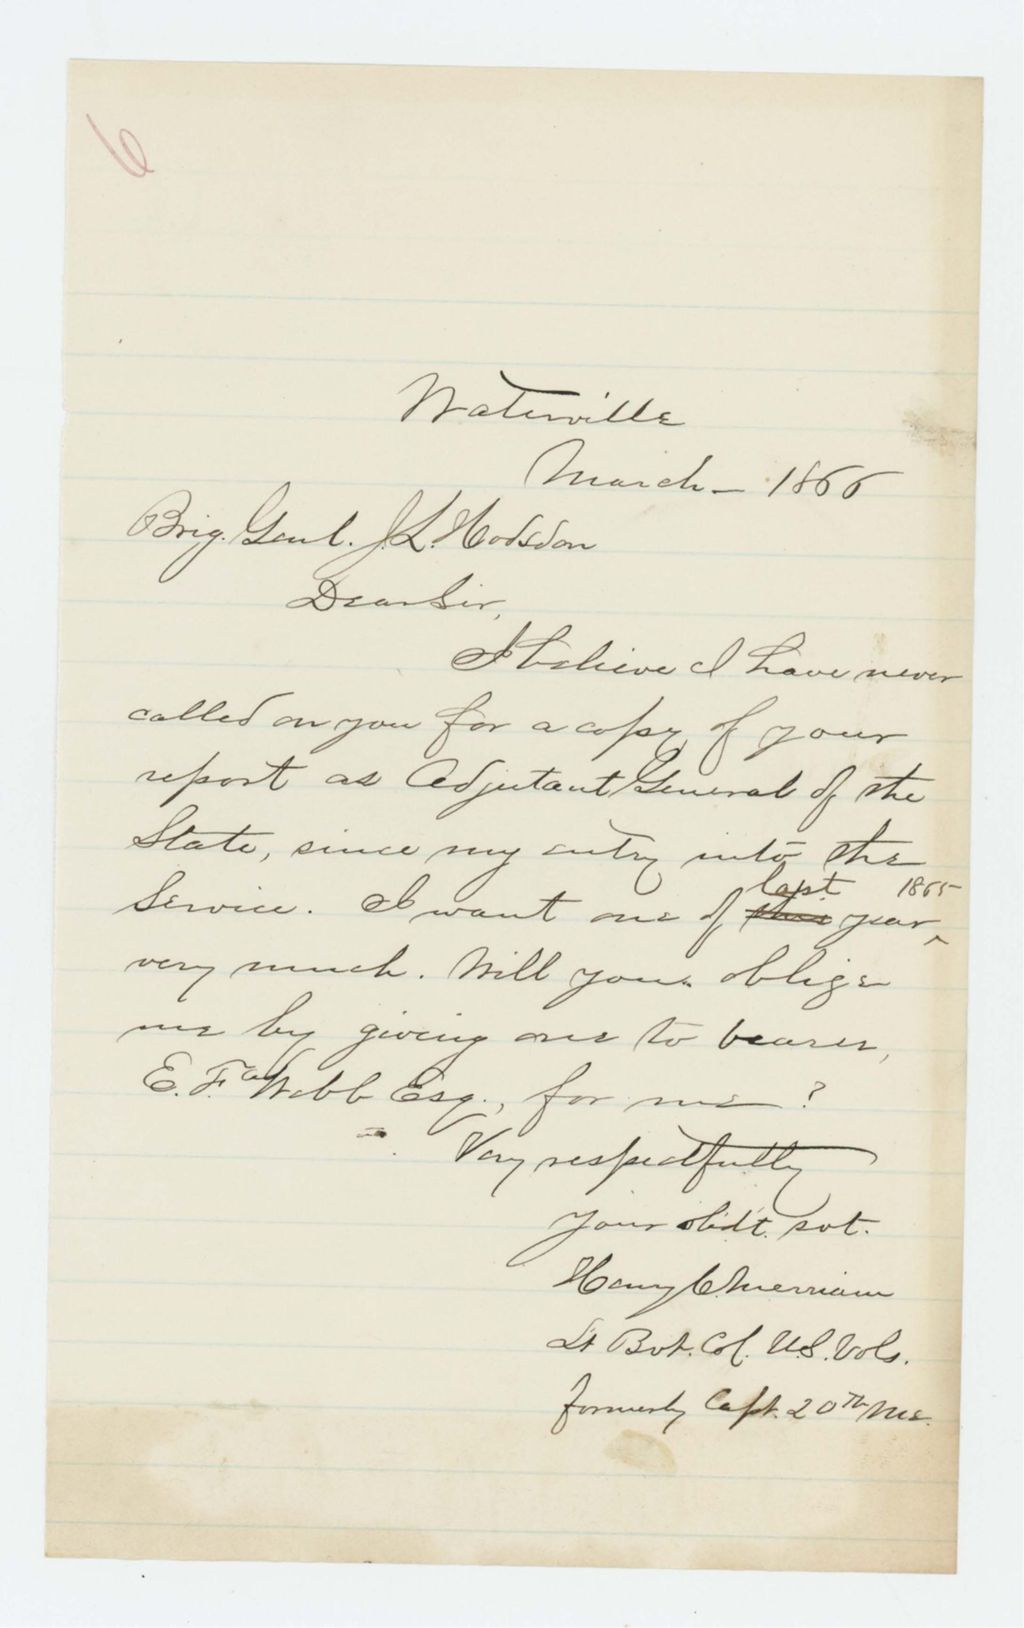 6
Waterville
March - 1866
Brig. Genl. J.L. Hodsdon
Dear Sir,
I believe I have never
called on you for a copy of your
report as Adjutant General of the
State, since my entry into the
last 1865
Service. I want one of this year,
very much. Will you oblige
me by giving one to bearer,
E. F. Webb Esq., for me?
Very respectfully
Your obdt. svt.
Henry C. Merriam
Lt Bvt. Col. U.S. Vols.
formerly Capt. 20th Me.